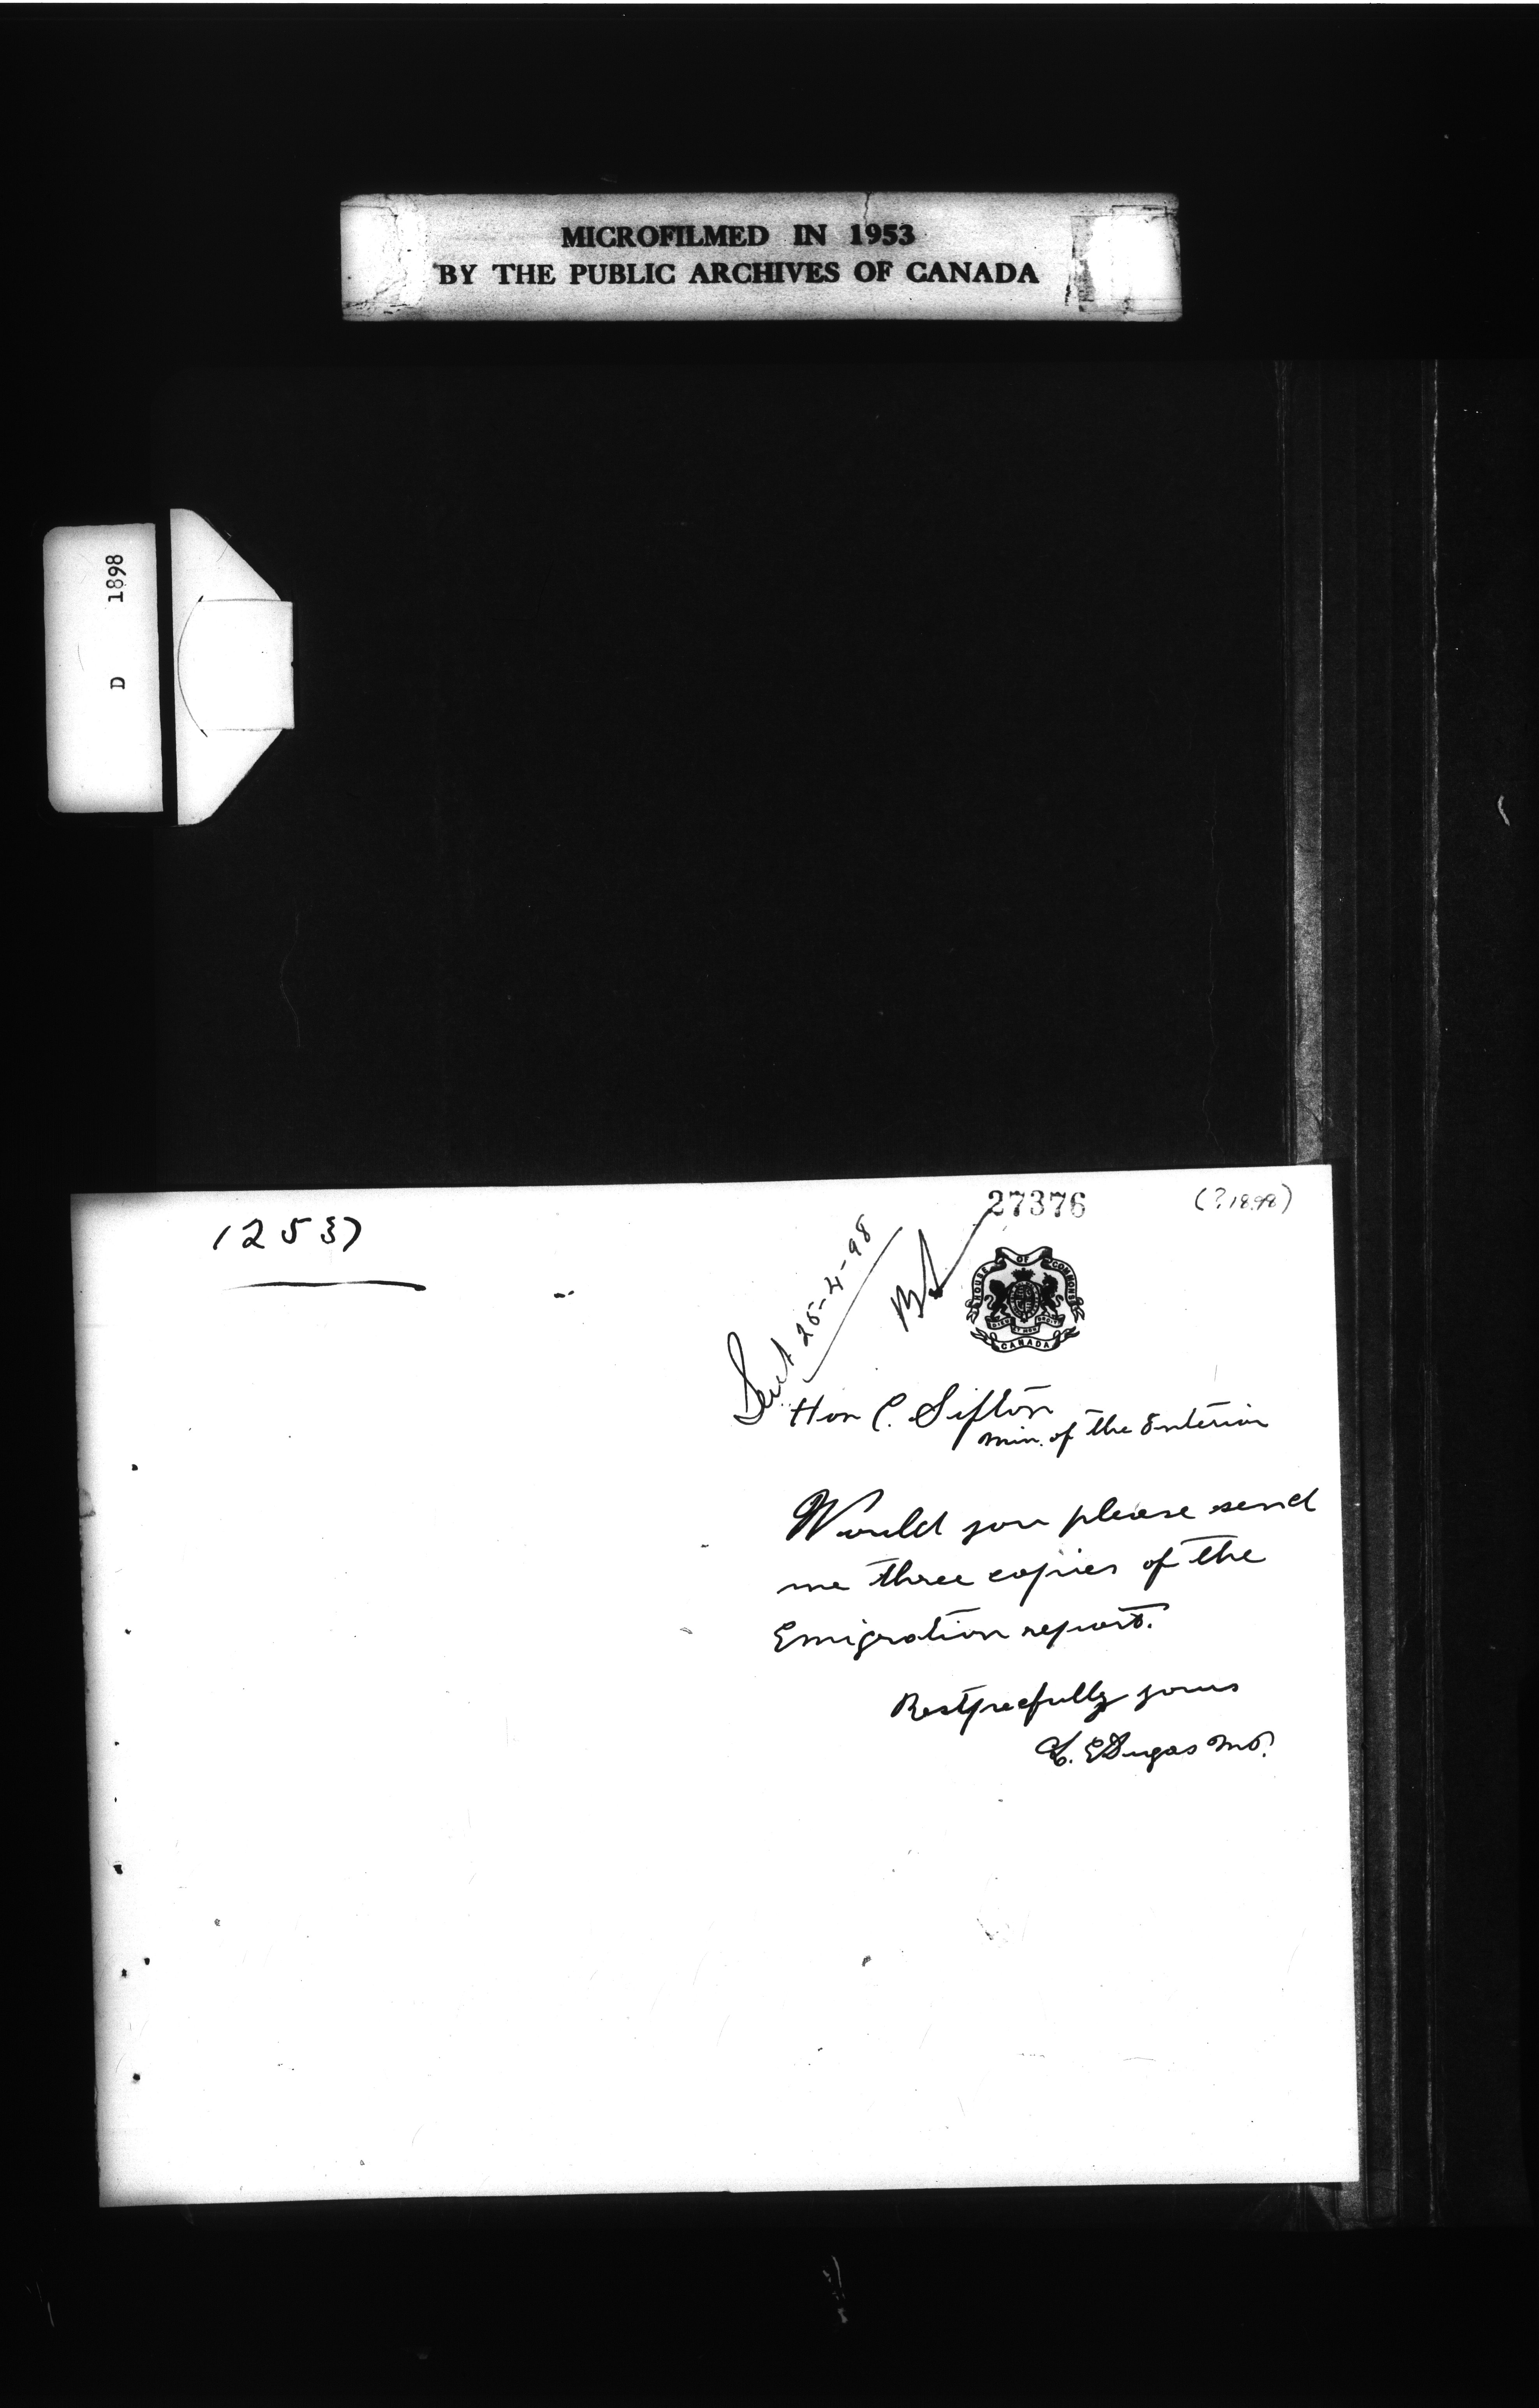 MICROFILMED IN 1953
BY THE PUBLIC ARCHIVES OF CANADA
D 1898
12537
27376
(?, 1898)
Sent 25-4-98
HOUSE OF COMMONS
DIEU ET MON DROIT
CANADA
Hon C. Sifton
Min. of the Interior
Would you please send
me three copies of the
Emigration report.
Restpecfully yours
L. E Dugas